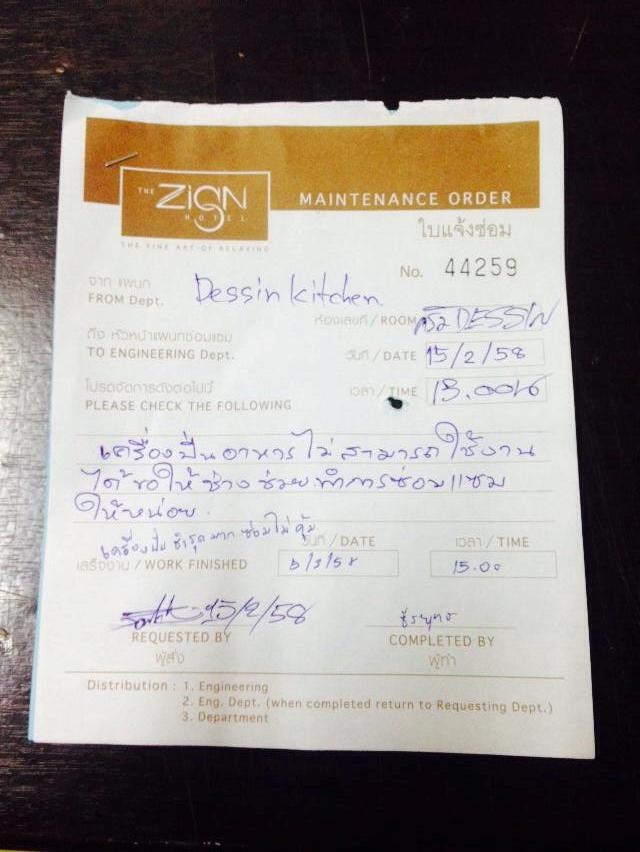 THE ZIGN HOTEL
THE FINE ART OF RELAXING
MAINTENANCE ORDER
ใบแจ้งซ่อม
No. 44259
จาก แผนก
FROM Dept. Dessin kitchen
ห้องเลขที่ / ROOM ครัว DESSIN
ถึง หัวหน้าแผนกซ่อมแซม
TO ENGINEERING Dept.
วันที่ / DATE 15/2/58
โปรดจัดการดังต่อไปนี้
PLEASE CHECK THE FOLLOWING
เวลา / TIME 13.00น
เครื่องปั่นอาหารไม่สามารถใช้งาน
ได้ขอให้ช่างช่วยทำการซ่อมแซม
ให้หน่อย.
เครื่องปั่นชำรุดมาก ซ่อมไม่คุ้ม
วันที่ / DATE
เวลา / TIME
เสร็จงาน / WORK FINISHED 6/3/58 15.00
15/2/58
REQUESTED BY
ผู้สั่ง
COMPLETED BY
ผู้ทำ
Distribution : 1. Engineering
2. Eng. Dept. (when completed return to Requesting Dept.)
3. Department